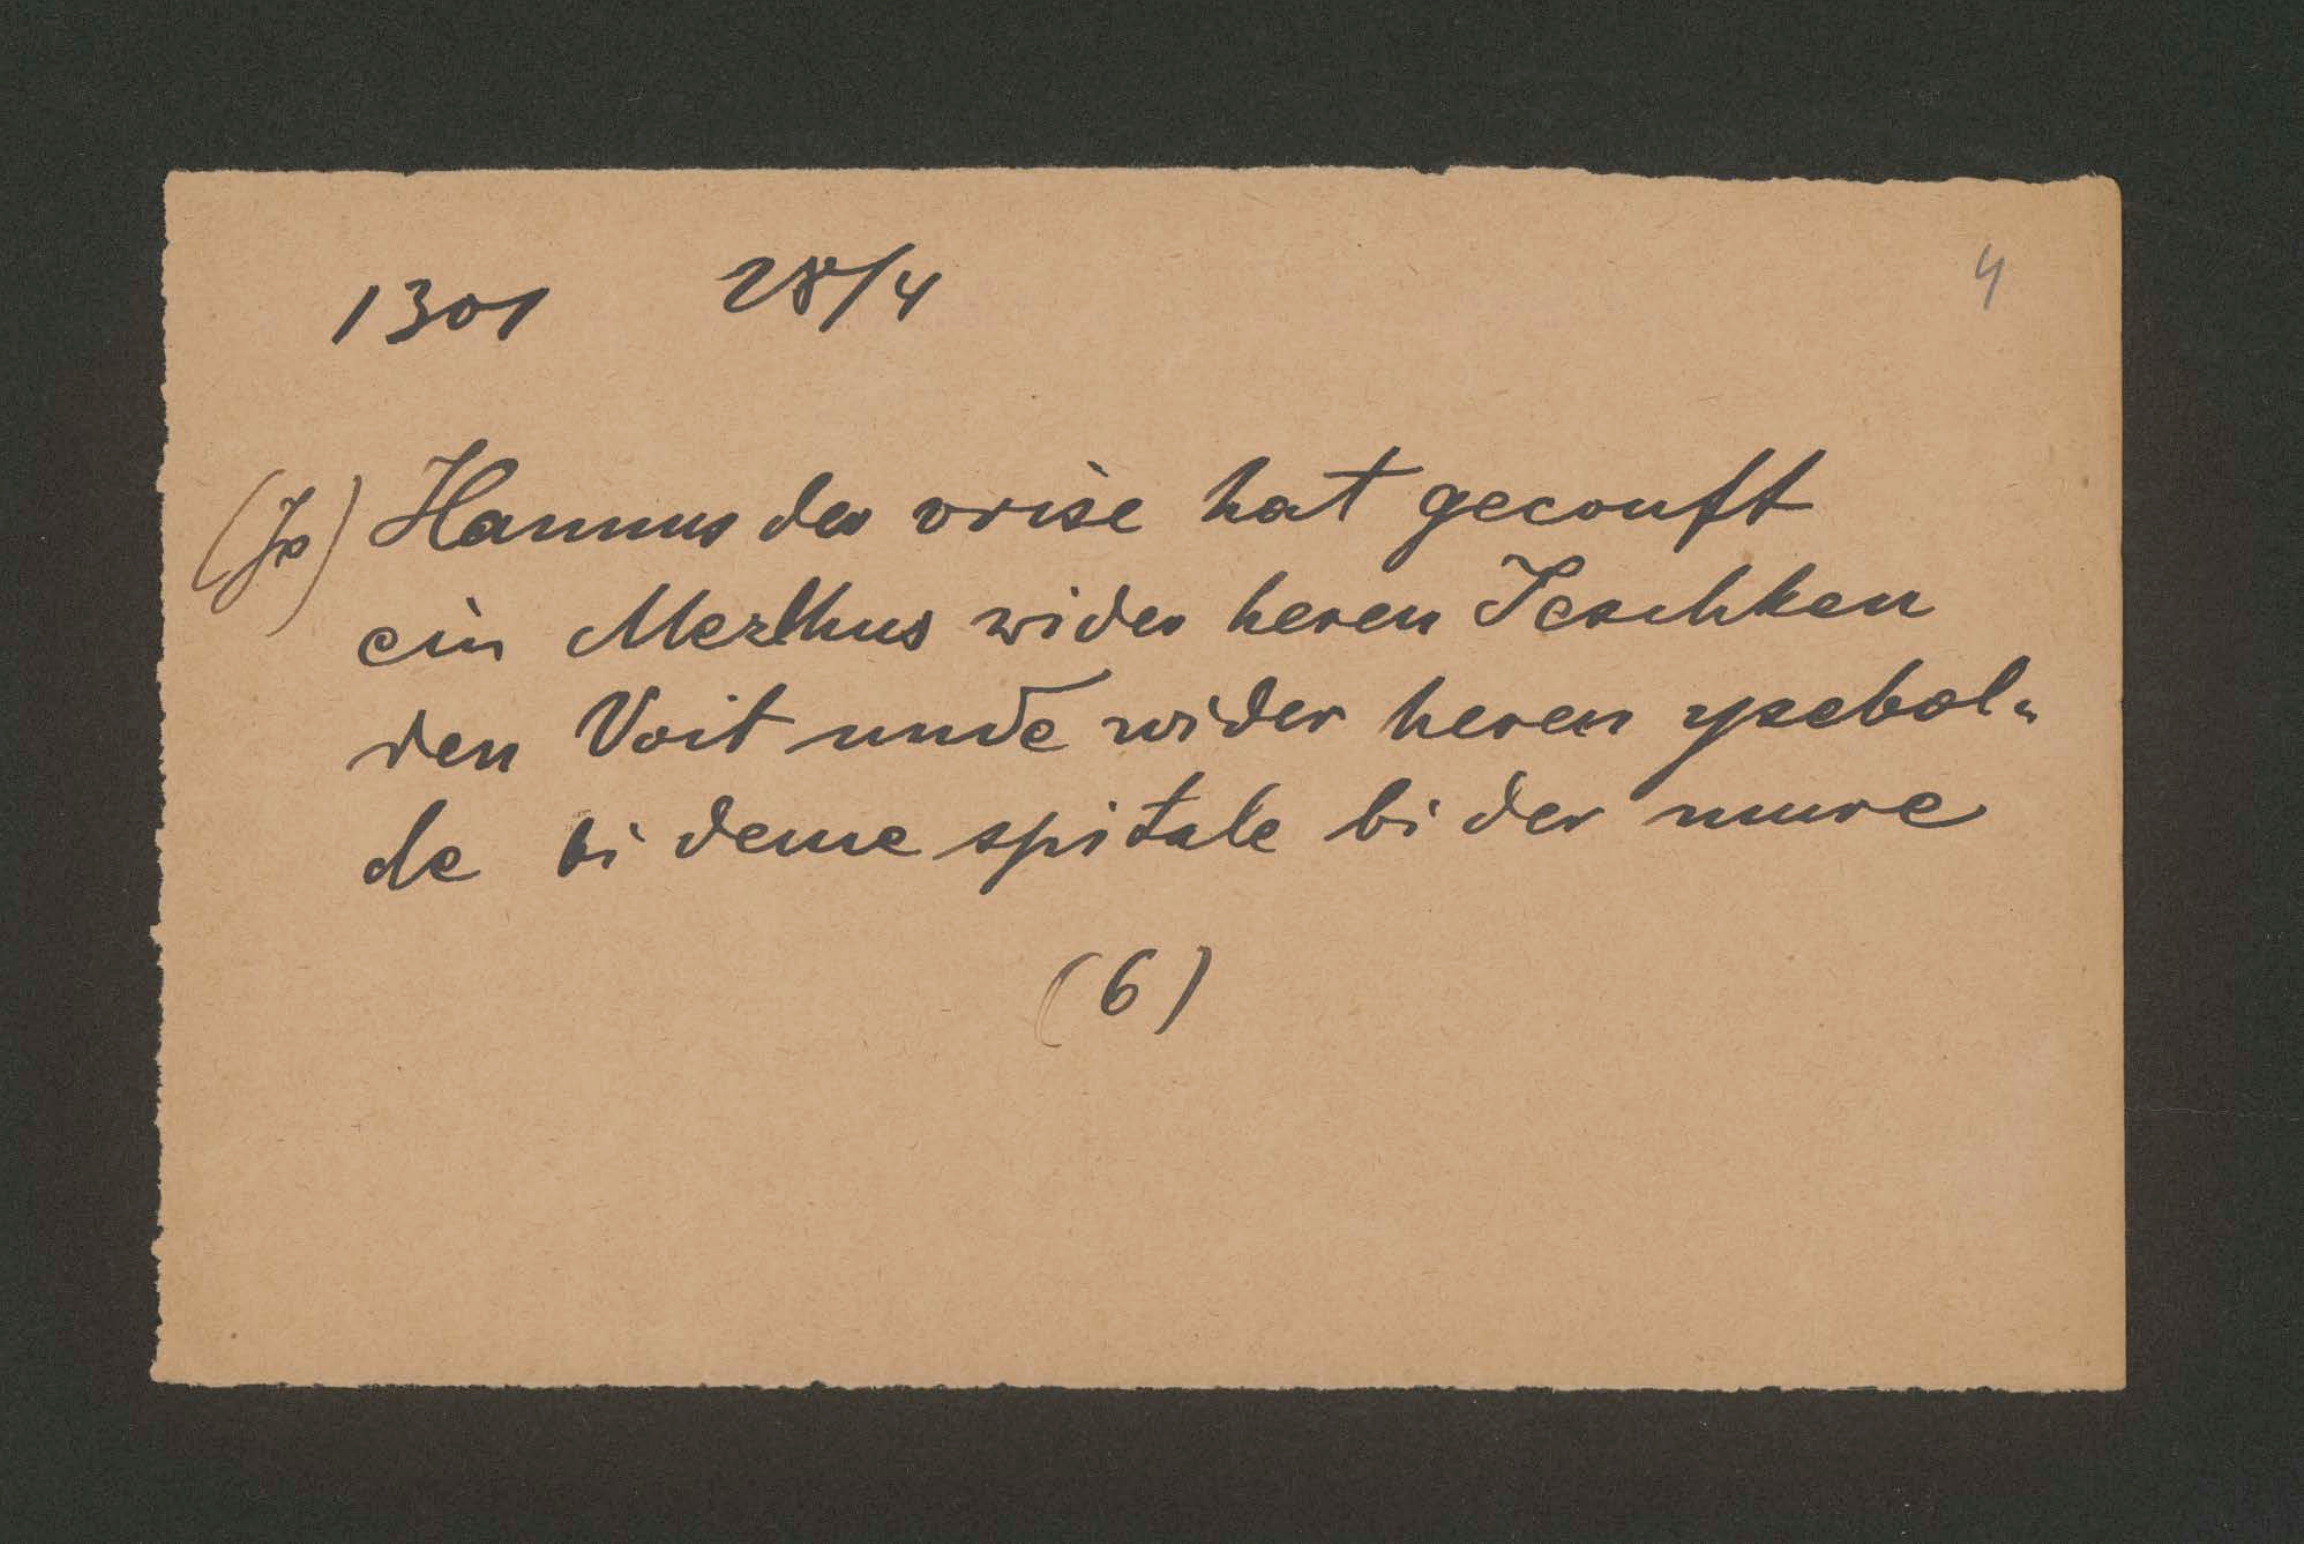 1301 28/4 4
(Jo) Hannus der vrise hat gecouft
ein Merthus wider heren Jeschken
den Voit unde wider heren ysebol-
de bi deme spitale bi der mure
(6)